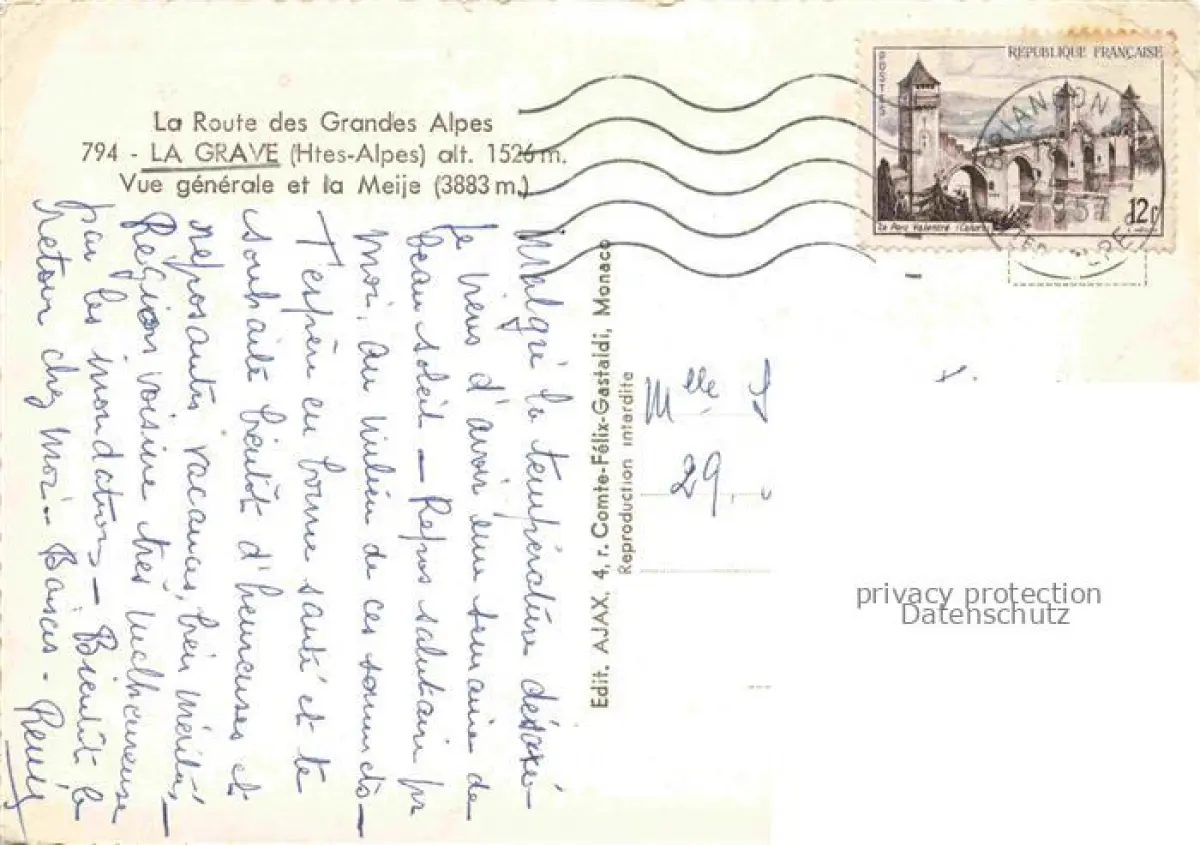 La Route des Grandes Alpes
794 - LA GRAVE (Htes-Alpes) alt. 1526 m.
Vue générale et la Meije (3883 m.)
REPUBLIQUE FRANÇAISE
POSTES
12f
Le Pont Valentré (Cahors)
BRIANÇON
1957
Malgré la température désaxé-
je viens d'avoir une semaine de
beau soleil — Repos salutaire pr
moi, au milieu de ces sommets —
T'espère en bonne santé et te
souhaite bientôt d'heureuses et
reposantes vacances, bien mérités, —
Région voisine très malheureuse
par les inondations — Bientôt le
retour chez moi — Baisers -
Edit. AJAX, 4, r. Comte-Félix-Gastaldi, Monaco
Reproduction interdite
Mlle
29,
privacy protection
Datenschutz